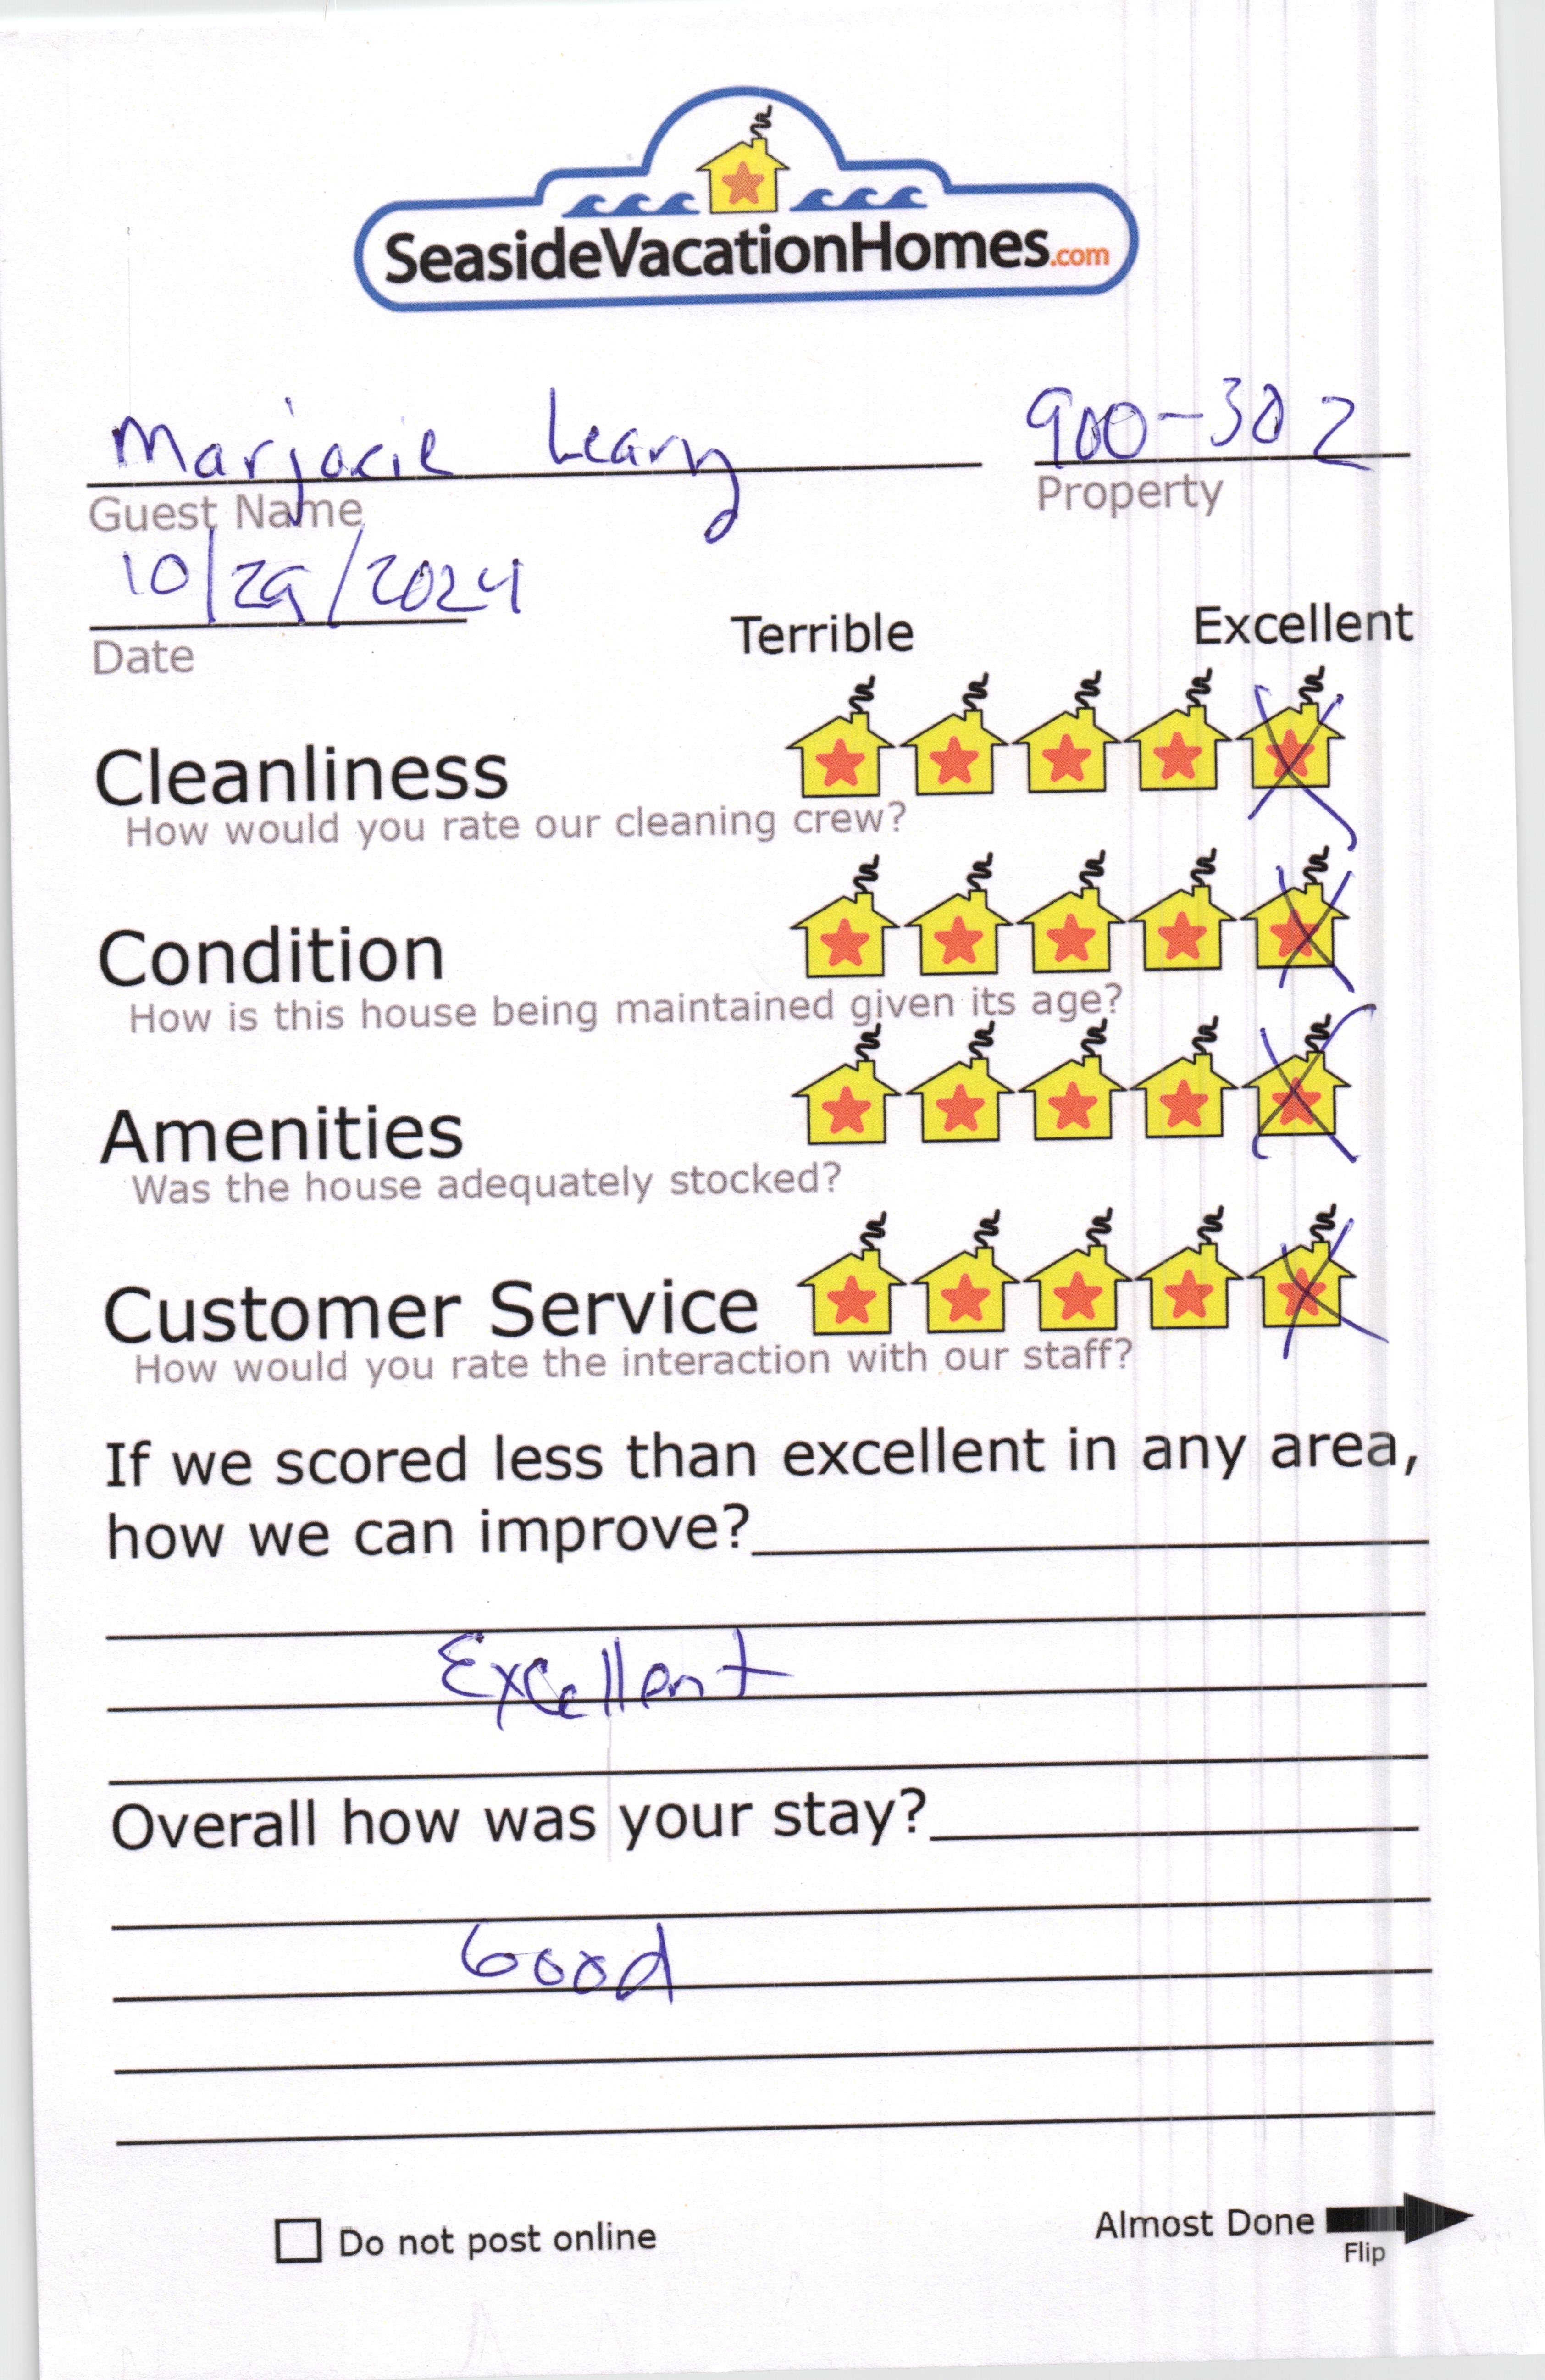 SeasideVacationHomes.com
Marjorie Leary 900-302
Guest Name Property
10/29/2024
Date
Terrible Excellent
Cleanliness
How would you rate our cleaning crew?
Condition
How is this house being maintained given its age?
Amenities
Was the house adequately stocked?
Customer Service
How would you rate the interaction with our staff?
If we scored less than excellent in any area,
how we can improve?
Excellent
Overall how was your stay?
Good
Do not post online
Almost Done
Flip